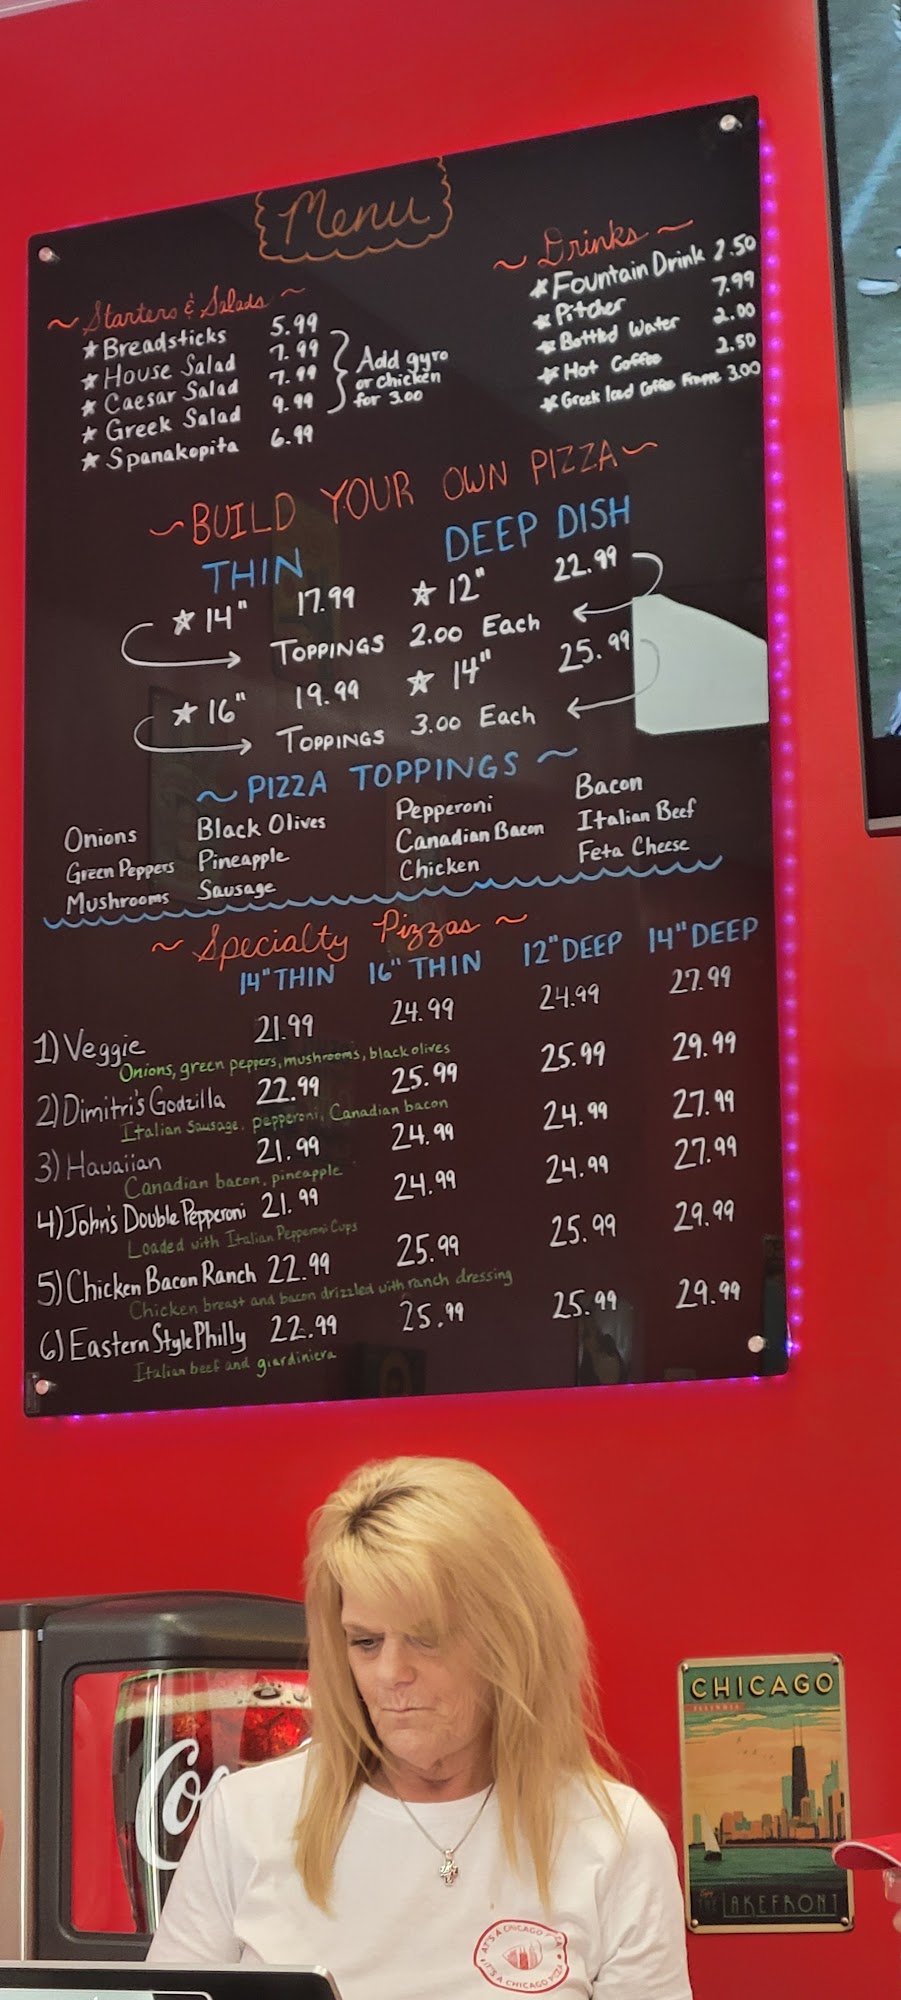 Menu
~ Starters & Salads ~
★ Breadsticks 5.99
★ House Salad 7.99
★ Caesar Salad 7.99
★ Greek Salad 9.99
★ Spanakopita 6.99
Add gyro
or chicken
for 3.00
~ Drinks ~
★ Fountain Drink 2.50
★ Pitcher 7.99
★ Bottled Water 2.00
★ Hot Coffee 2.50
★ Greek Iced Coffee Frappe 3.00
~BUILD YOUR OWN PIZZA~
THIN DEEP DISH
★ 14" 17.99 ★ 12" 22.99
TOPPINGS 2.00 Each
★ 16" 19.99 ★ 14" 25.99
TOPPINGS 3.00 Each
~ PIZZA TOPPINGS ~
Onions Black Olives Pepperoni Bacon
Green Peppers Pineapple Canadian Bacon Italian Beef
Mushrooms Sausage Chicken Feta Cheese
~ Specialty Pizzas ~
14" THIN 16" THIN 12" DEEP 14" DEEP
1) Veggie 21.99 24.99 24.99 27.99
Onions, green peppers, mushrooms, black olives
2) Dimitri's Godzilla 22.99 25.99 25.99 29.99
Italian Sausage, pepperoni, Canadian bacon
3) Hawaiian 21.99 24.99 24.99 27.99
Canadian bacon, pineapple
4) John's Double Pepperoni 21.99 24.99 24.99 27.99
Loaded with Italian Pepperoni Cups
5) Chicken Bacon Ranch 22.99 25.99 25.99 29.99
Chicken breast and bacon drizzled with ranch dressing
6) Eastern Style Philly 22.99 25.99 25.99 29.99
Italian beef and giardiniera
CHICAGO
ILLINOIS
THE LAKEFRONT
Co
AT'S A CHICAGO
IT'S A CHICAGO PIZZA